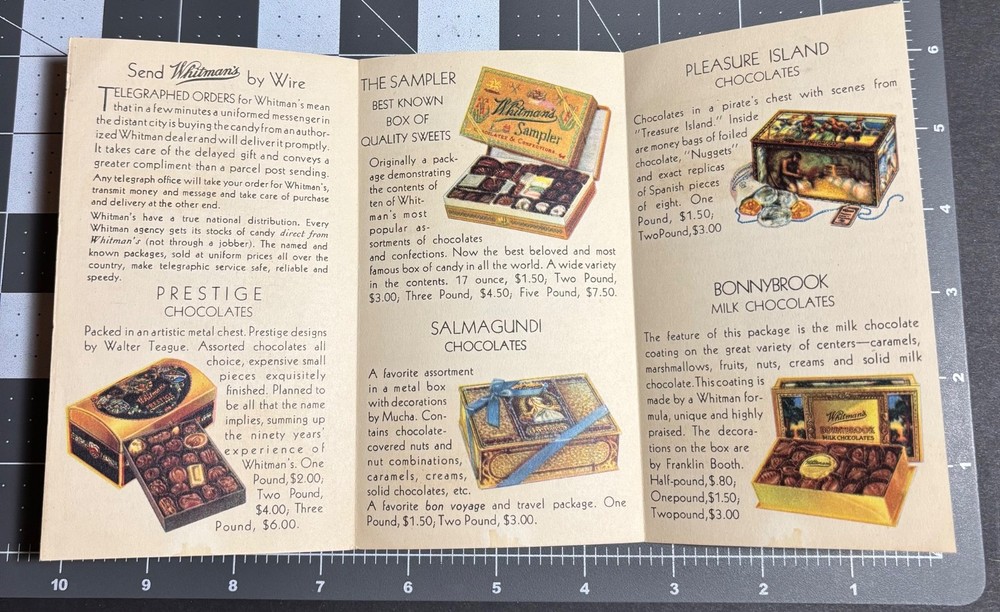 Send Whitman's by Wire
TELEGRAPHED ORDERS for Whitman's mean
that in a few minutes a uniformed messenger in
the distant city is buying the candy from an author-
ized Whitman dealer and will deliver it promptly.
It takes care of the delayed gift and conveys a
greater compliment than a parcel post sending.
Any telegraph office will take your order for Whitman's,
transmit money and message and take care of purchase
and delivery at the other end.
Whitman's have a true national distribution. Every
Whitman agency gets its stocks of candy direct from
Whitman's (not through a jobber). The named and
known packages, sold at uniform prices all over the
country, make telegraphic service safe, reliable and
speedy.
PRESTIGE
CHOCOLATES
Packed in an artistic metal chest. Prestige designs
by Walter Teague. Assorted chocolates all
choice, expensive small
pieces exquisitely
finished. Planned to
be all that the name
implies, summing up
the ninety years'
experience of
Whitman's. One
Pound, $2.00;
Two Pound,
$4.00; Three
Pound, $6.00.
THE SAMPLER
BEST KNOWN
BOX OF
QUALITY SWEETS
Whitman's
Sampler
CHOCOLATES & CONFECTIONS
Originally a pack-
age demonstrating
the contents of
ten of Whit-
man's most
popular as-
sortments of chocolates
and confections. Now the best beloved and most
famous box of candy in all the world. A wide variety
in the contents. 17 ounce, $1.50; Two Pound,
$3.00; Three Pound, $4.50; Five Pound, $7.50.
SALMAGUNDI
CHOCOLATES
A favorite assortment
in a metal box
with decorations
by Mucha. Con-
tains chocolate-
covered nuts and
nut combinations,
caramels, creams,
solid chocolates, etc.
A favorite bon voyage and travel package. One
Pound, $1.50; Two Pound, $3.00.
PLEASURE ISLAND
CHOCOLATES
Chocolates in a pirate's chest with scenes from
"Treasure Island." Inside
are money bags of foiled
chocolate, "Nuggets"
and exact replicas
of Spanish pieces
of eight. One
Pound, $1.50;
Two Pound, $3.00
BONNYBROOK
MILK CHOCOLATES
The feature of this package is the milk chocolate
coating on the great variety of centers—caramels,
marshmallows, fruits, nuts, creams and solid milk
chocolate. This coating is
made by a Whitman for-
mula, unique and highly
praised. The decora-
tions on the box are
by Franklin Booth.
Half-pound, $.80;
One pound, $1.50;
Two pound, $3.00
Whitman's
BONNYBROOK
MILK CHOCOLATES
6
5
4
3
2
1
10 9 8 7 6 5 4 3 2 1